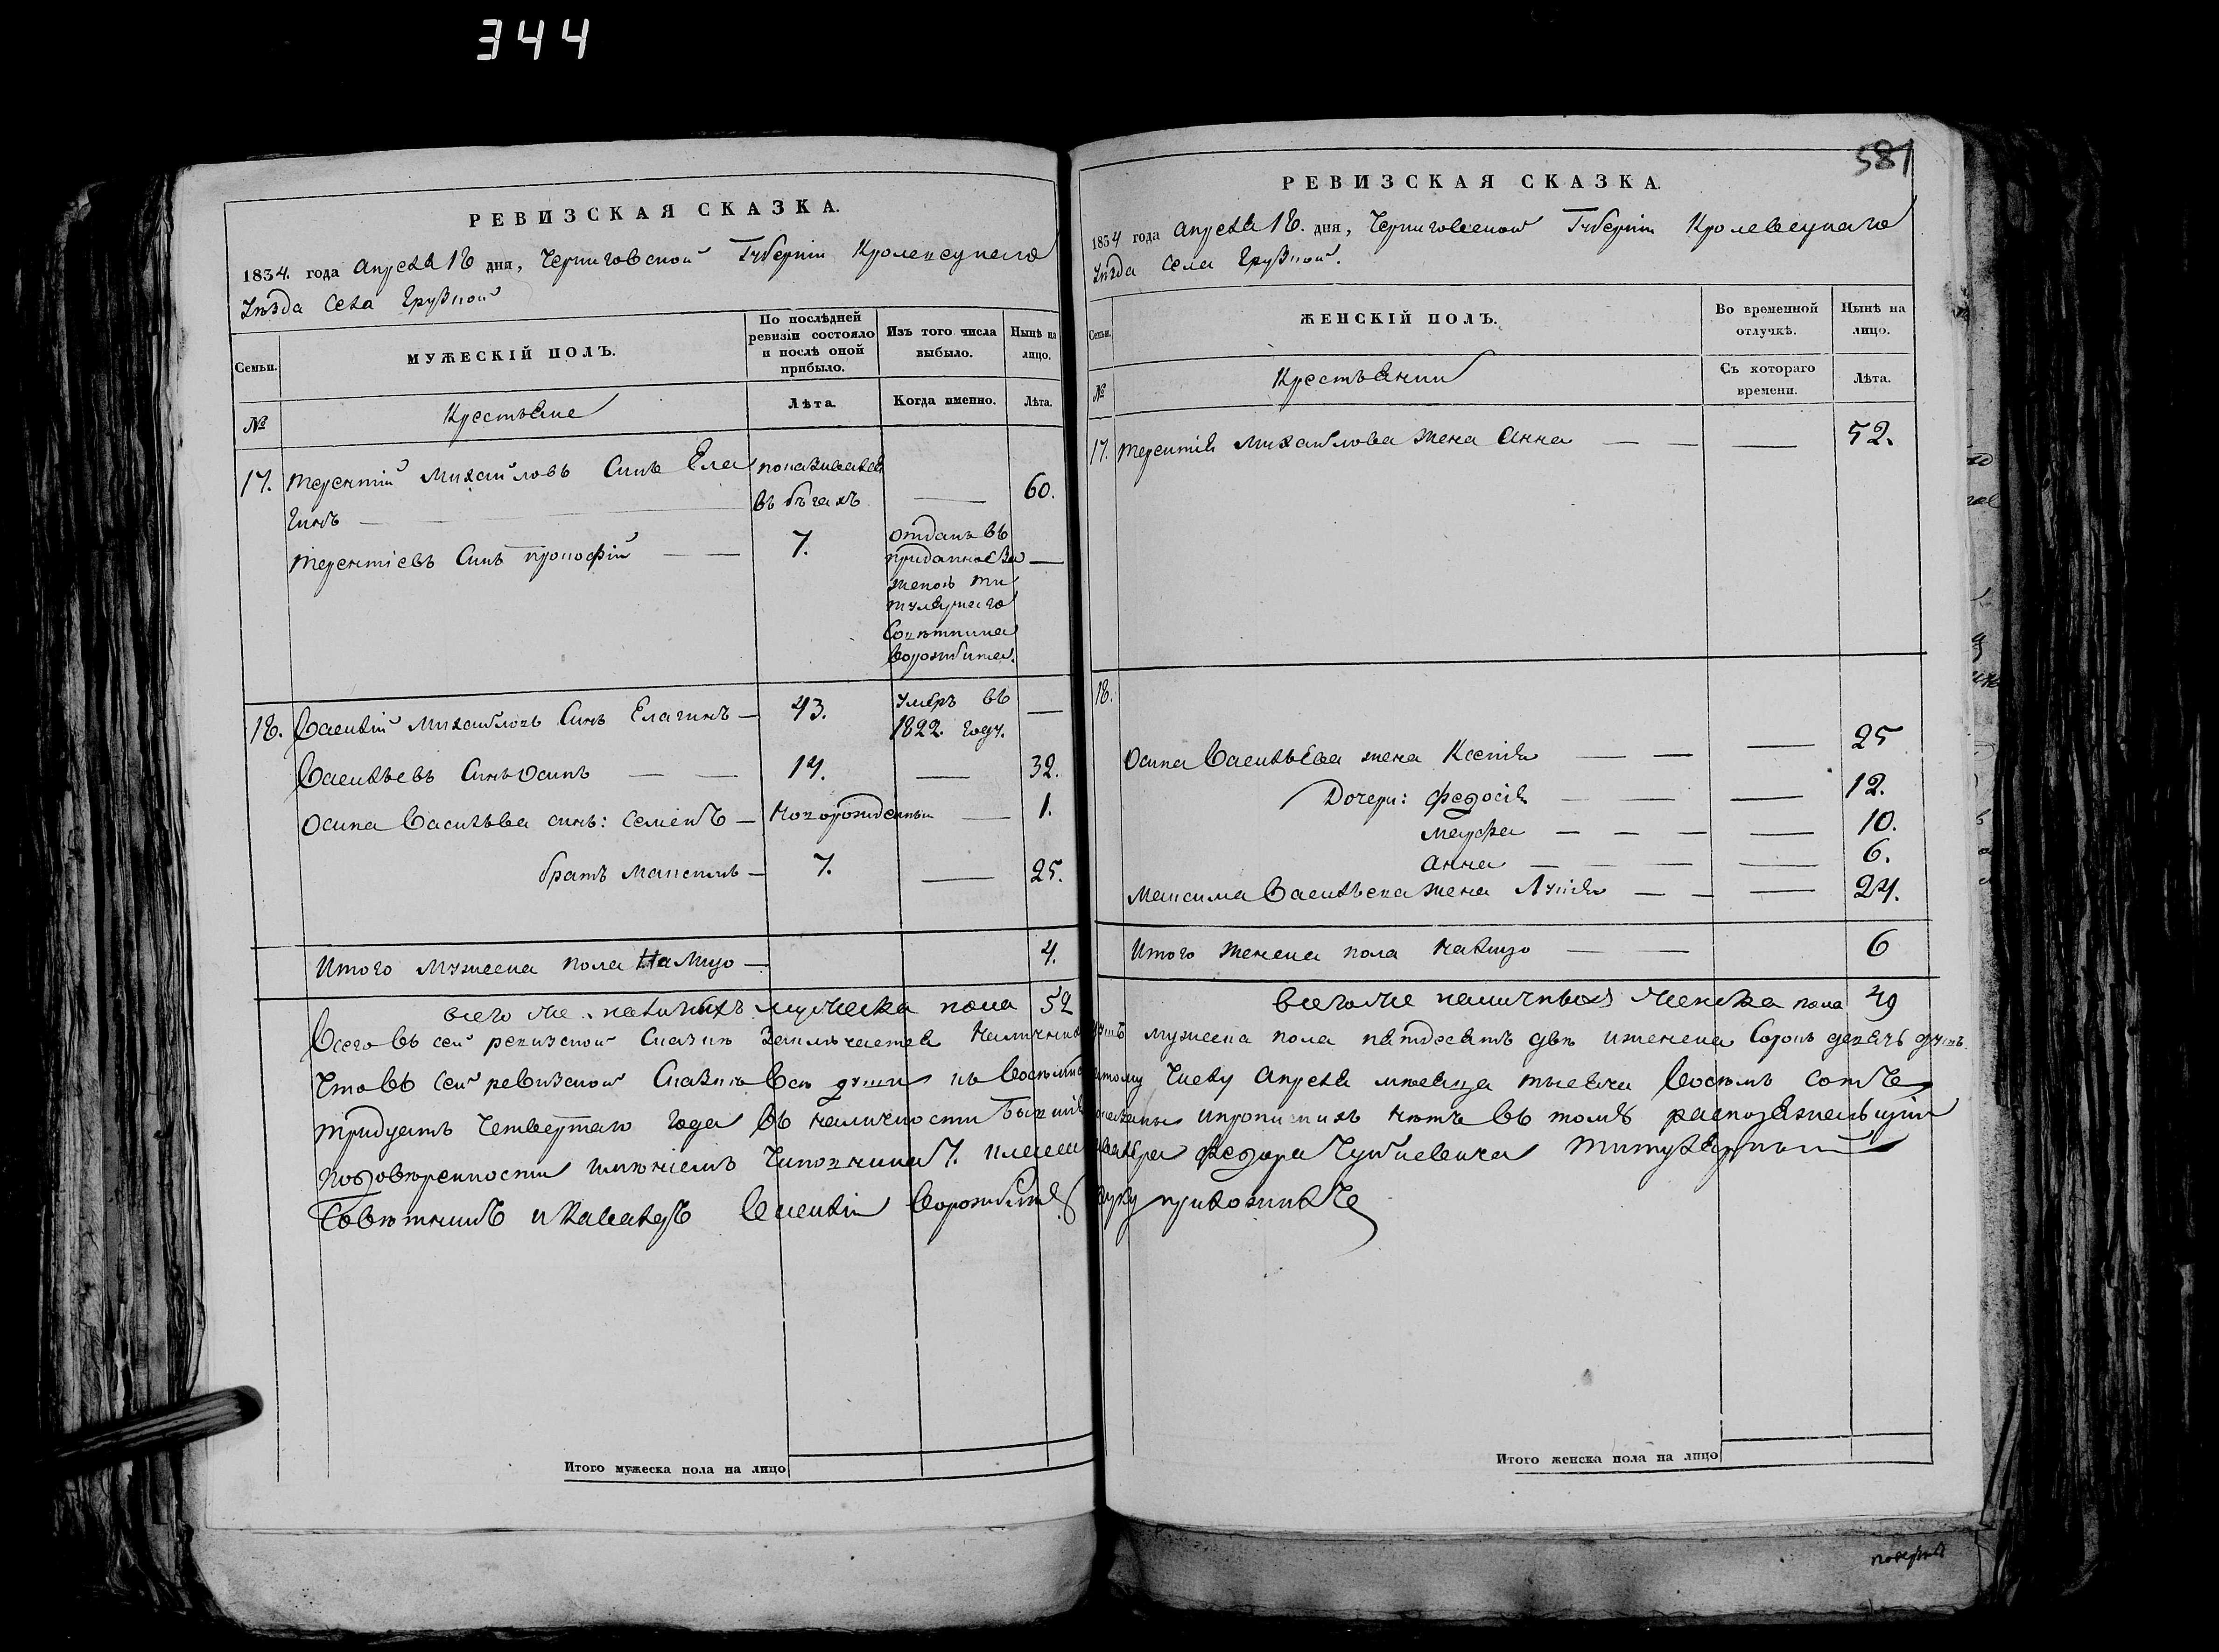 344
РЕВИЗСКАЯ СКАЗКА.
1834. года Апреля 18 дня, Черниговской Губерніи Кролевецкаго
Уѣзда Села Грузкой
Семьи.
МУЖЕСКІЙ ПОЛЪ.
По послѣдней
ревизіи состояло
и послѣ оной
прибыло.
Изъ того числа
выбыло.
Нынѣ на
лицо.
№
Крестьяне
Лѣта.
Когда именно.
Лѣта.
17. Терентій Михайловъ Сынъ Ела
гинъ
показывался
въ бѣгахъ
60.
Терентіевъ Сынъ прокофій
7.
отданъ въ
приданное за
женою ти
тулярнаго
Советника
Ворожбита.
18. Василій Михайловъ Сынъ Елагинъ
43.
Умеръ въ
1822. году.
Васильевъ Сынъ Осипъ
14.
32.
Осипа Васильева сынъ: Семенъ
Новорожденный
1.
братъ Максимъ
7.
25.
Итого Мужеска пола На Лицо
4.
всего же наличныхъ мужеска пола 52
Итого мужеска пола на лицо
581
РЕВИЗСКАЯ СКАЗКА.
1834 года Апреля 18. дня, Черниговской Губерніи Кролевецкаго
Уѣзда Села Грузкой.
Семьи.
ЖЕНСКІЙ ПОЛЪ.
Во временной
отлучкѣ.
Нынѣ на
лицо.
№
Крестьянки
Съ котораго
времени.
Лѣта.
17. Терентія Михайлова жена Анна
52.
18.
Осипа Васильева жена Ксенія
25
Дочери: Федосія
12.
Марфа
10.
Анна
6.
Максима Васильева жена Лукія
24.
Итого женска пола налицо
6
всего же наличныхъ женска пола 49
Всего въ сей ревизской Сказкѣ Заключается Наличныхъ душъ мужеска пола пятдесятъ двѣ и женска Сорокъ девять душъ.
Что въ сей ревизской Сказкѣ всѣ души къ Восемнадцатому числу Апреля мѣсяца тысяча восемъ сотъ
тридцать четвертаго года въ наличности бывшія показаны и прописныхъ нѣтъ въ томъ
по довѣренности имѣніемъ Чиновника 7. класса Федора Титулярный
Совѣтникъ и Кавалеръ Василій Ворожбитъ руку приложилъ
Итого женска пола на лицо